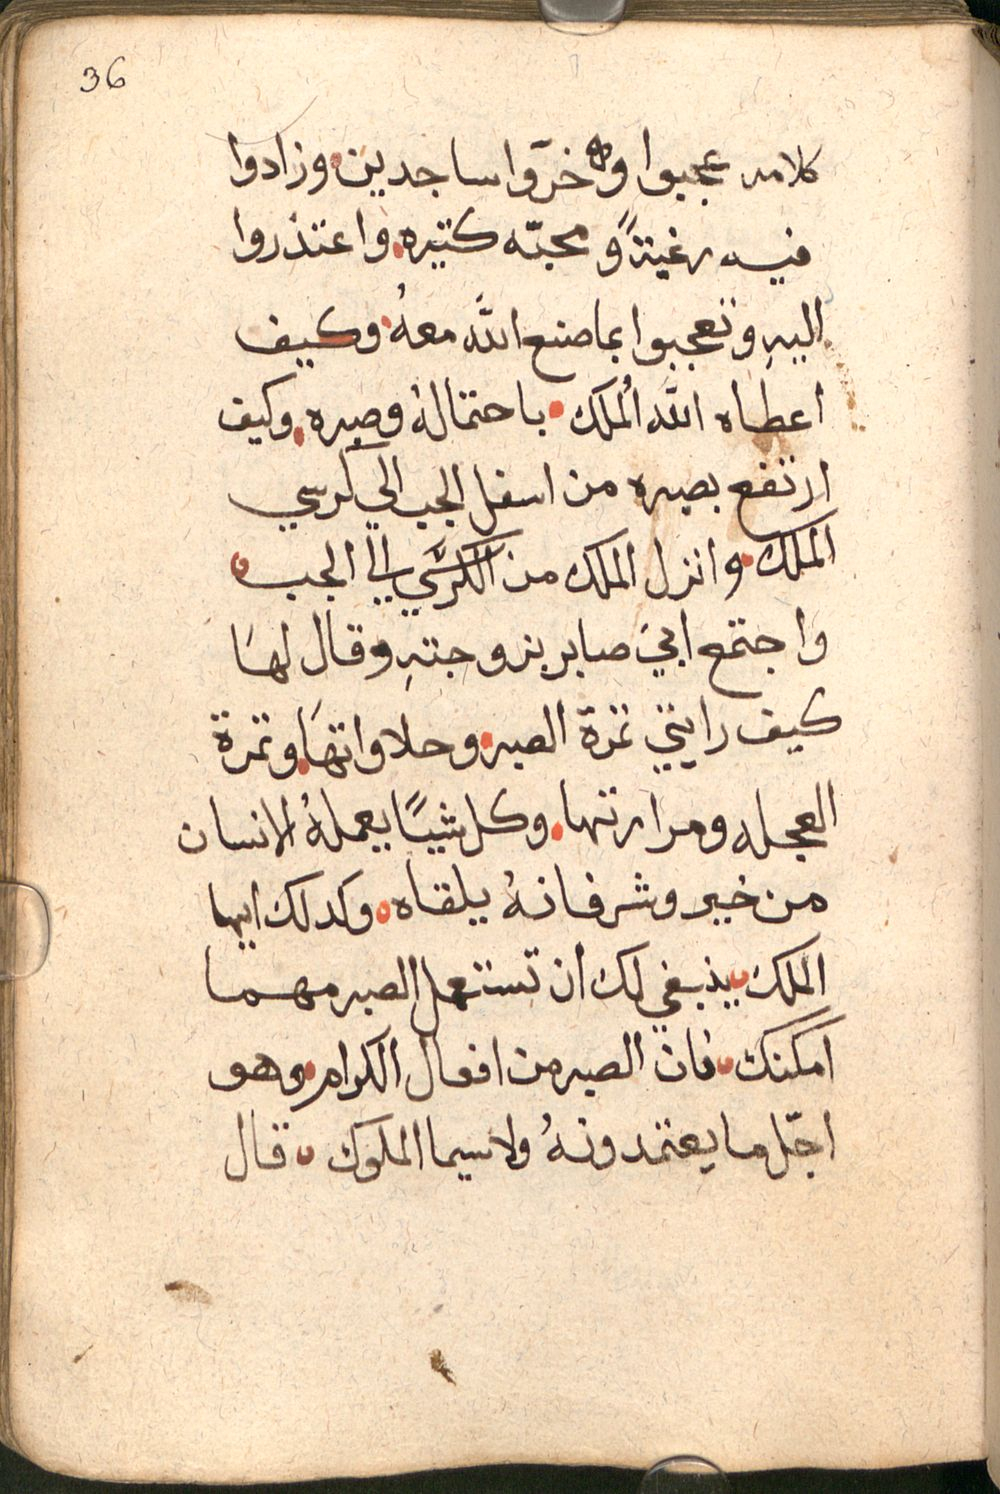 36
كلامه عجبوا وخرّوا ساجدين وزادوا
فيه رغبةً ومحبّه كتيره. واعتذروا
اليهِ وتعجبوا بما صنع اللّه معهُ وكيف
اعطاه اللّه المُلك. باحتمالهُ وصبره. وكيف
ارتفع بصبره من اسفل الجب الي كرسي
الملك. وانزل الملك من الكرسَي الي الجب
واجتمع ابي صابر بزوجتهِ وقال لهَا
كيف رايتي تمرة الصبر. وحلاواتهَا. وتمرة
العجله ومرارتها. وكل شيًا يعملهُ الانسان
من خير وشر فانهُ يلقاه وكدلك ايها
الملك ينبغي لك ان تستعمل الصبر مهما
امكنك فان الصبر من افعال الكرام وهو
اجّل ما يعتمدونهُ ولا سيما الملوك قال